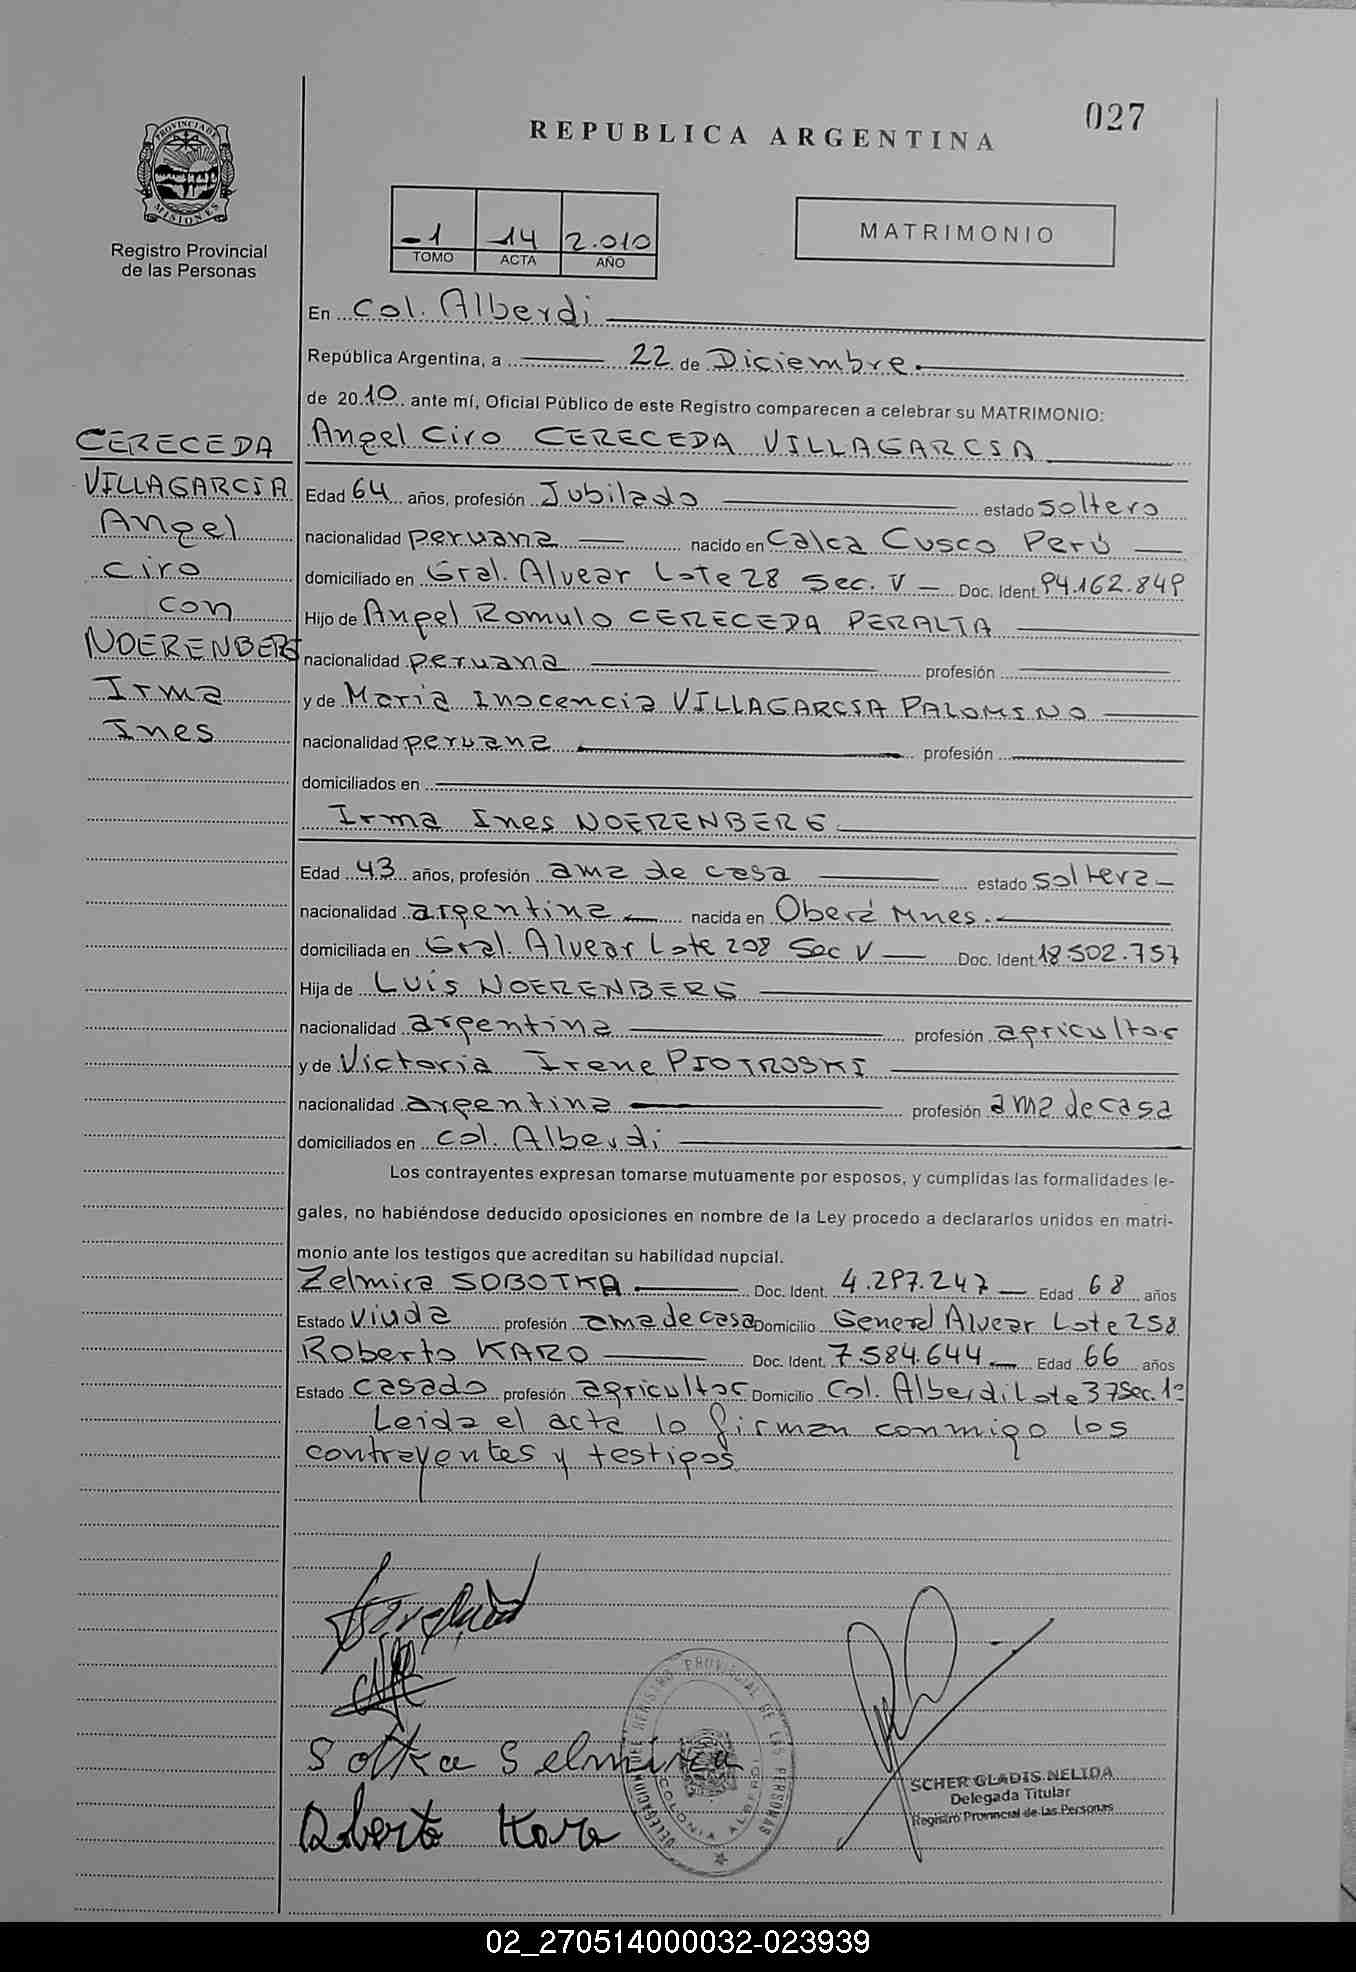 027
REPUBLICA ARGENTINA
PROVINCIA DE
MISIONES
Registro Provincial
de las Personas
-1 14 2.010
TOMO ACTA AÑO
MATRIMONIO
En Col. Alberdi
República Argentina, a 22 de Diciembre
de 2010 ante mí, Oficial Público de este Registro comparecen a celebrar su MATRIMONIO:
CERECEDA
VILLAGARCIA
Angel
Ciro
con
NOERENBERG
Irma
Ines
Angel Ciro CERECEDA VILLAGARCIA
Edad 64 años, profesión Jubilado estado soltero
nacionalidad peruana nacido en Calca Cusco Perú
domiciliado en Gral. Alvear Lote 28 Sec. V Doc. Ident. 94.162.849
Hijo de Angel Romulo CERECEDA PERALTA
nacionalidad peruana profesión
y de Maria Inocencia VILLAGARCIA PALOMINO
nacionalidad peruana profesión
domiciliados en
Irma Ines NOERENBERG
Edad 43 años, profesión ama de casa estado soltera
nacionalidad argentina nacida en Oberá Mnes.
domiciliada en Gral. Alvear Lote 208 Sec V Doc. Ident. 18.502.757
Hija de Luis NOERENBERG
nacionalidad argentina profesión agricultor
y de Victoria Irene PIOTROSKI
nacionalidad argentina profesión ama de casa
domiciliados en Col. Alberdi
Los contrayentes expresan tomarse mutuamente por esposos, y cumplidas las formalidades le-
gales, no habiéndose deducido oposiciones en nombre de la Ley procedo a declararlos unidos en matri-
monio ante los testigos que acreditan su habilidad nupcial.
Zelmira SOBOTKA Doc. Ident. 4.297.247 Edad 68 años
Estado viuda profesión ama de casa Domicilio General Alvear Lote 258
Roberto KARO Doc. Ident. 7.584.644 Edad 66 años
Estado casado profesión agricultor Domicilio Col. Alberdi Lote 37 Sec. 1º
Leida el acta lo firman conmigo los
contrayentes y testigos
Selmira
Roberto Karo
DELEGACION DEL REGISTRO PROVINCIAL DE LAS PERSONAS
COLONIA ALBERDI
SCHER GLADIS NELIDA
Delegada Titular
Registro Provincial de las Personas
02_270514000032-023939